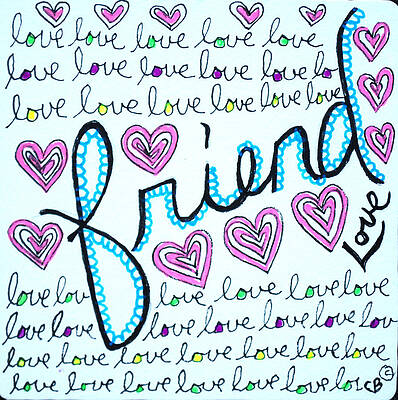 love love love love love
love love love love love lo
love love love love love love
friend
Love
love love love love love love
love love love love love love love
love love love love love love love love
love love love love love love love lo
CB ©